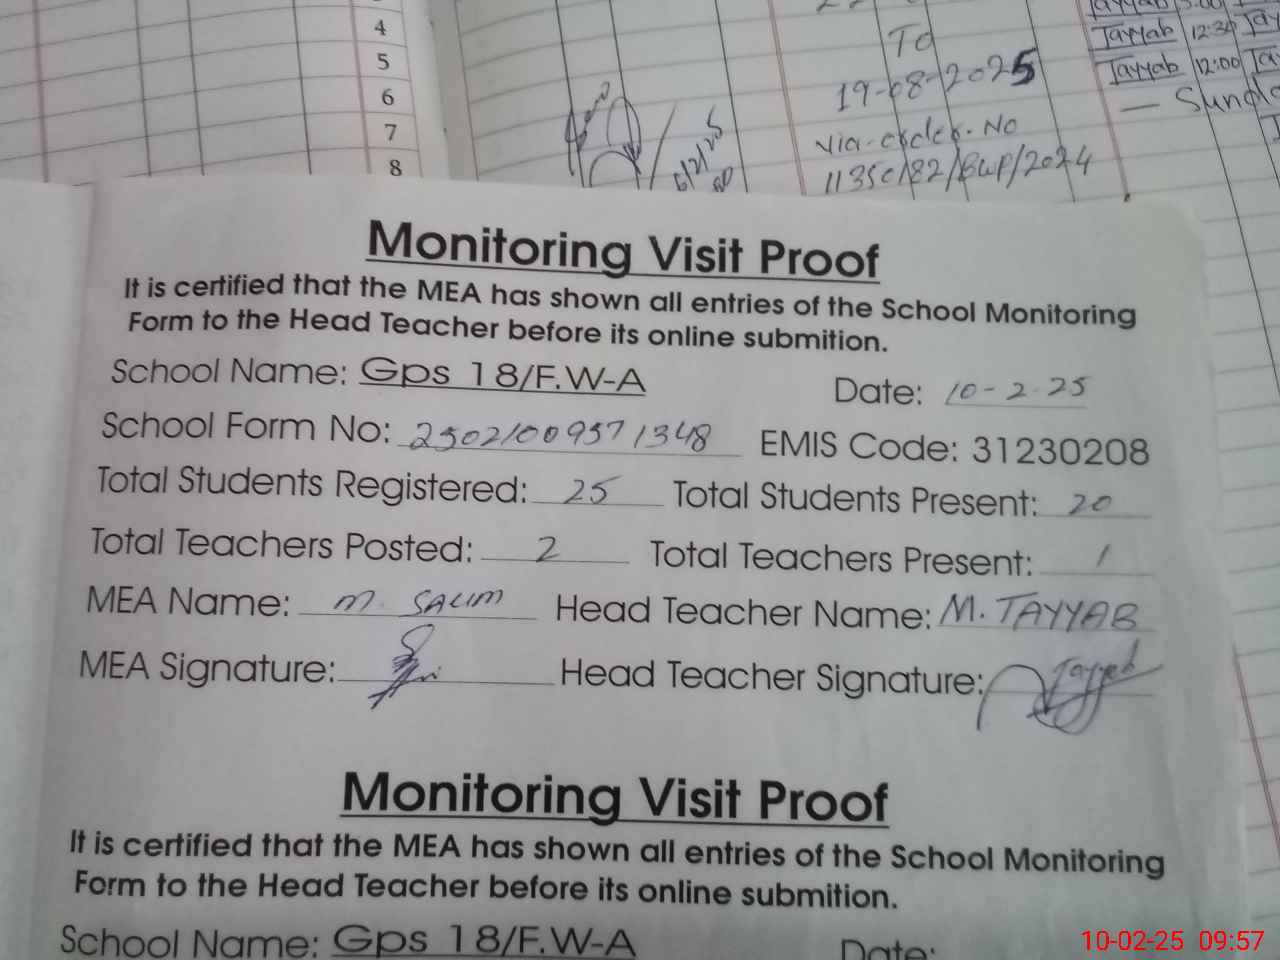 4
5
6
7
8
To
19-08-2025
via order No
1135C/82/BWP/2024
Tayyab 12:30
Tayyab 12:00
6/2/25
Monitoring Visit Proof
It is certified that the MEA has shown all entries of the School Monitoring
Form to the Head Teacher before its online submition.
School Name: Gps 18/F.W-A Date: 10-2-25
School Form No: 25021009571348 EMIS Code: 31230208
Total Students Registered: 25 Total Students Present: 20
Total Teachers Posted: 2 Total Teachers Present: 1
MEA Name: M. SALIM Head Teacher Name: M. TAYYAB
MEA Signature: Head Teacher Signature: Tayyab
Monitoring Visit Proof
It is certified that the MEA has shown all entries of the School Monitoring
Form to the Head Teacher before its online submition.
School Name: Gps 18/F.W-A Date:
10-02-25 09:57